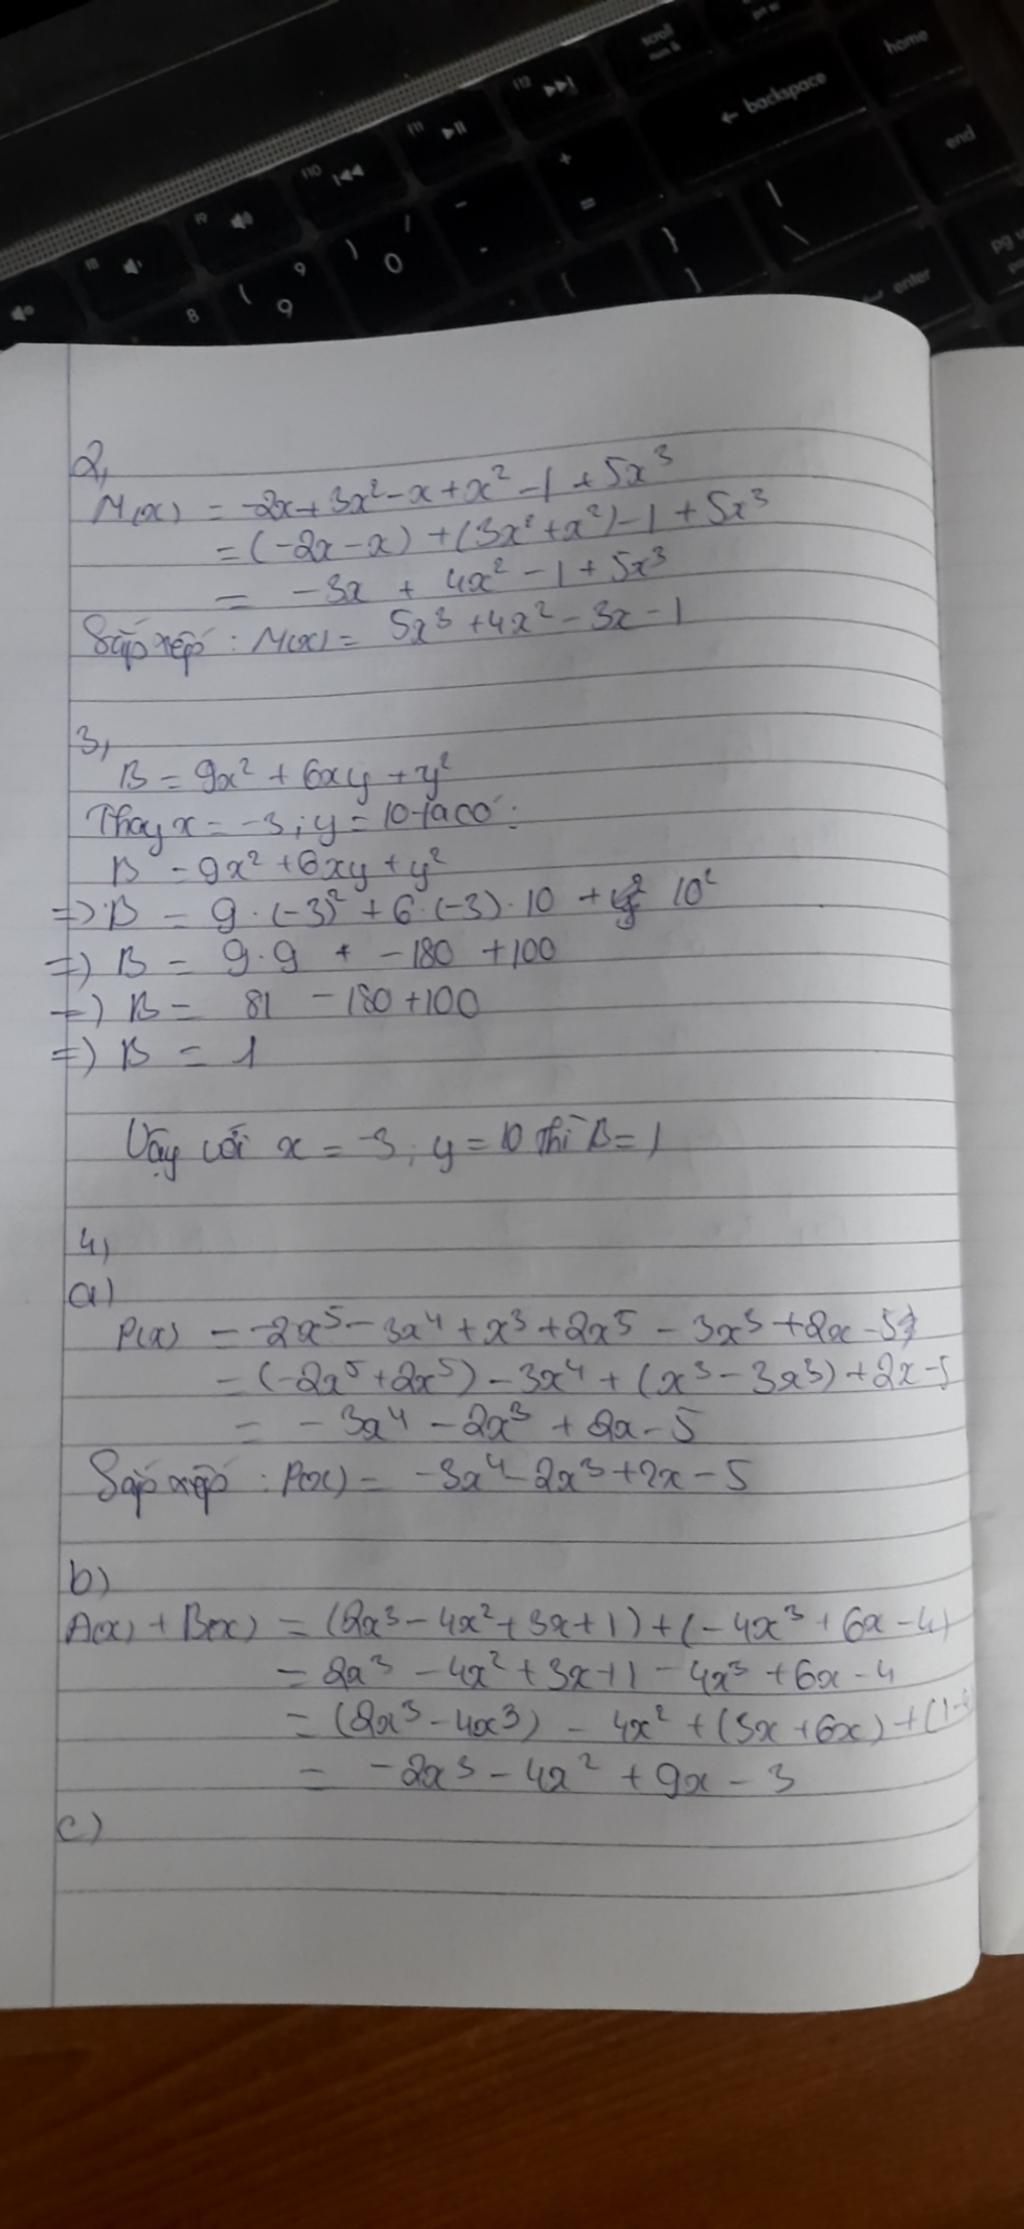 scroll
home
← backspace
end
f12
f11
f10
f9
f8
enter
2,
M(x) = -2x + 3x² - x + x² - 1 + 5x³
= (-2x - x) + (3x² + x²) - 1 + 5x³
= -3x + 4x² - 1 + 5x³
Sắp xếp : M(x) = 5x³ + 4x² - 3x - 1
3,
B = 9x² + 6xy + y²
Thay x = -3 ; y = 10 ta có :
B = 9x² + 6xy + y²
=> B = 9 · (-3)² + 6 · (-3) · 10 + 10²
=> B = 9 · 9 + -180 + 100
=> B = 81 - 180 + 100
=> B = 1
Vậy với x = -3 ; y = 10 thì B = 1
4,
a)
P(x) = -2x⁵ - 3x⁴ + x³ + 2x⁵ - 3x³ + 2x - 5
= (-2x⁵ + 2x⁵) - 3x⁴ + (x³ - 3x³) + 2x - 5
= -3x⁴ - 2x³ + 2x - 5
Sắp xếp : P(x) = -3x⁴ - 2x³ + 2x - 5
b)
A(x) + B(x) = (2x³ - 4x² + 3x + 1) + (-4x³ + 6x - 4)
= 2x³ - 4x² + 3x + 1 - 4x³ + 6x - 4
= (2x³ - 4x³) - 4x² + (3x + 6x) + (1 -
= -2x³ - 4x² + 9x - 3
c)